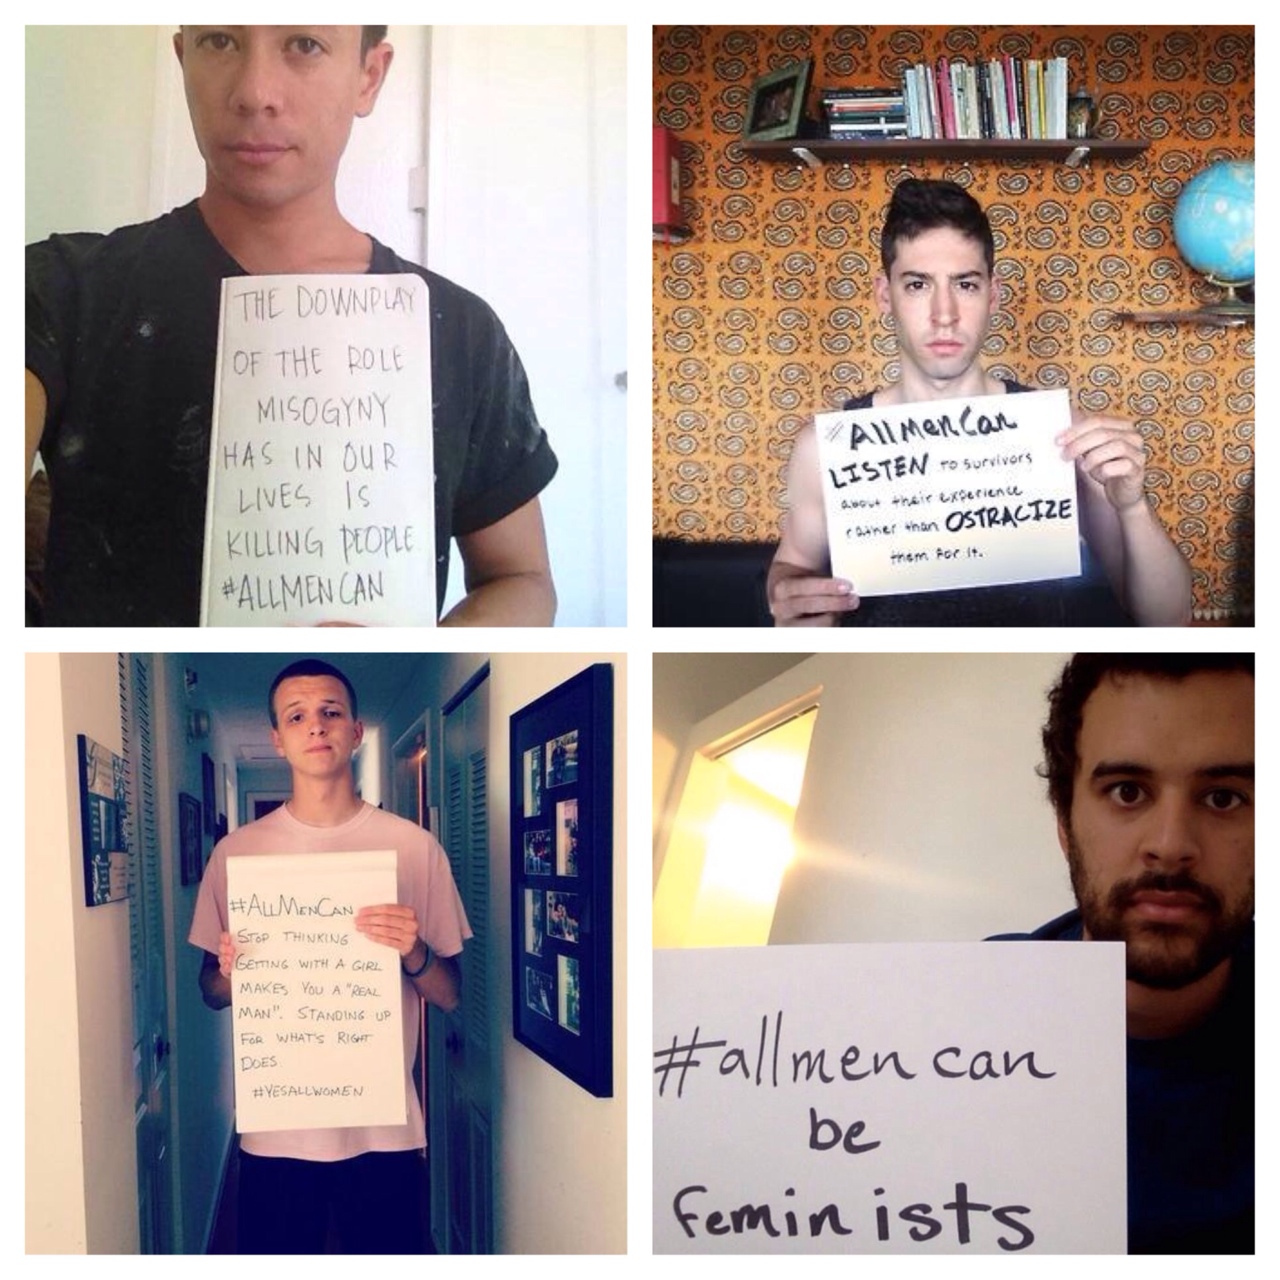 THE DOWNPLAY
OF THE ROLE
MISOGYNY
HAS IN OUR
LIVES IS
KILLING PEOPLE
#ALLMENCAN
#AllMenCan
LISTEN to survivors
about their experience
rather than OSTRACIZE
them for it.
#ALLMENCAN
STOP THINKING
GETTING WITH A GIRL
MAKES YOU A "REAL
MAN". STANDING UP
FOR WHAT'S RIGHT
DOES.
#YESALLWOMEN
#allmencan
be
feminists